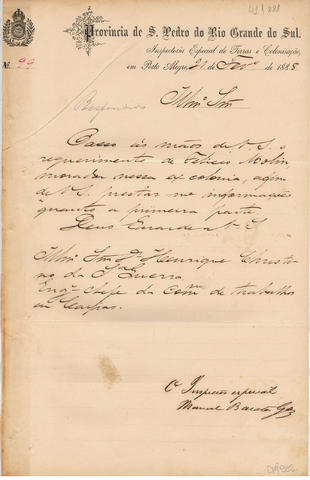 Provincia de S. Pedro do Rio Grande do Sul.
Inspectoria Especial de Terras e Colonisação,
Nº 99
em Porto Alegre, 21 de Fevº de 1888
Respondido
Illmo Snr
Passo ás mãos de V. S. o
requerimento de Felice
morador nessa ex colonia, afim
de V. S. prestar me informações
quanto a primeira parte.
Deus Guarde a V. S.
Illmo Snr Dr Henrique Christi
no da Sª Guerra
Engº Chefe da Comm de trabalho
em Caxias.
O Inspector especial
Manoel Barata Góes